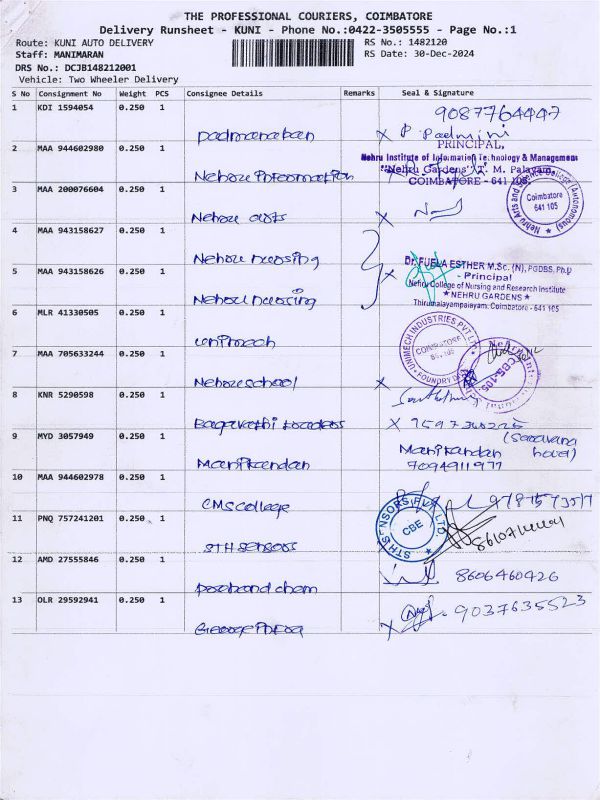 THE PROFESSIONAL COURIERS, COIMBATORE
Delivery Runsheet - KUNI - Phone No.:0422-3505555 - Page No.:1
Route: KUNI AUTO DELIVERY
RS No.: 1482120
Staff: MANIMARAN
RS Date: 30-Dec-2024
DRS No.: DCJB148212001
Vehicle: Two Wheeler Delivery
S No Consignment No Weight PCS Consignee Details Remarks Seal & Signature
1 KDI 1594054 0.250 1
9087764447
padmanaban X P Padmini
PRINCIPAL,
2 MAA 944602980 0.250 1
Nehru Institute of Information Technology & Management
"Nehru Gardens" T. M. Palayam
Nehru Information
COIMBATORE - 641 105.
3 MAA 200076604 0.250 1
Nehru Arts and Science College (Autonomous)
Coimbatore
641 105
Nehru arts X
4 MAA 943158627 0.250 1
Nehru nursing
Dr. FUELA ESTHER M.Sc. (N), PGDBS, Ph.D
- Principal
5 MAA 943158626 0.250 1 X
Nehru College of Nursing and Research Institute
★ NEHRU GARDENS ★
Nehru nursing
Thirumalayampalayam, Coimbatore - 641 105
6 MLR 41330505 0.250 1
UNIMECH INDUSTRIES PVT LTD
COIMBATORE
FOUNDRY
unimech
7 MAA 705633244 0.250 1
Nehru school X
8 KNR 5290598 0.250 1
Bagavathi traders X 7597368225
(Saravana hotel)
9 MYD 3057949 0.250 1
Manikandan
Manikandan 7094911977
10 MAA 944602978 0.250 1
CMS college
11 PNQ 757241201 0.250 1
STH SENSORS PVT. LTD.
CBE
STH sensors
12 AMD 27555846 0.250 1
8606460426
13 OLR 29592941 0.250 1
9037635523
X